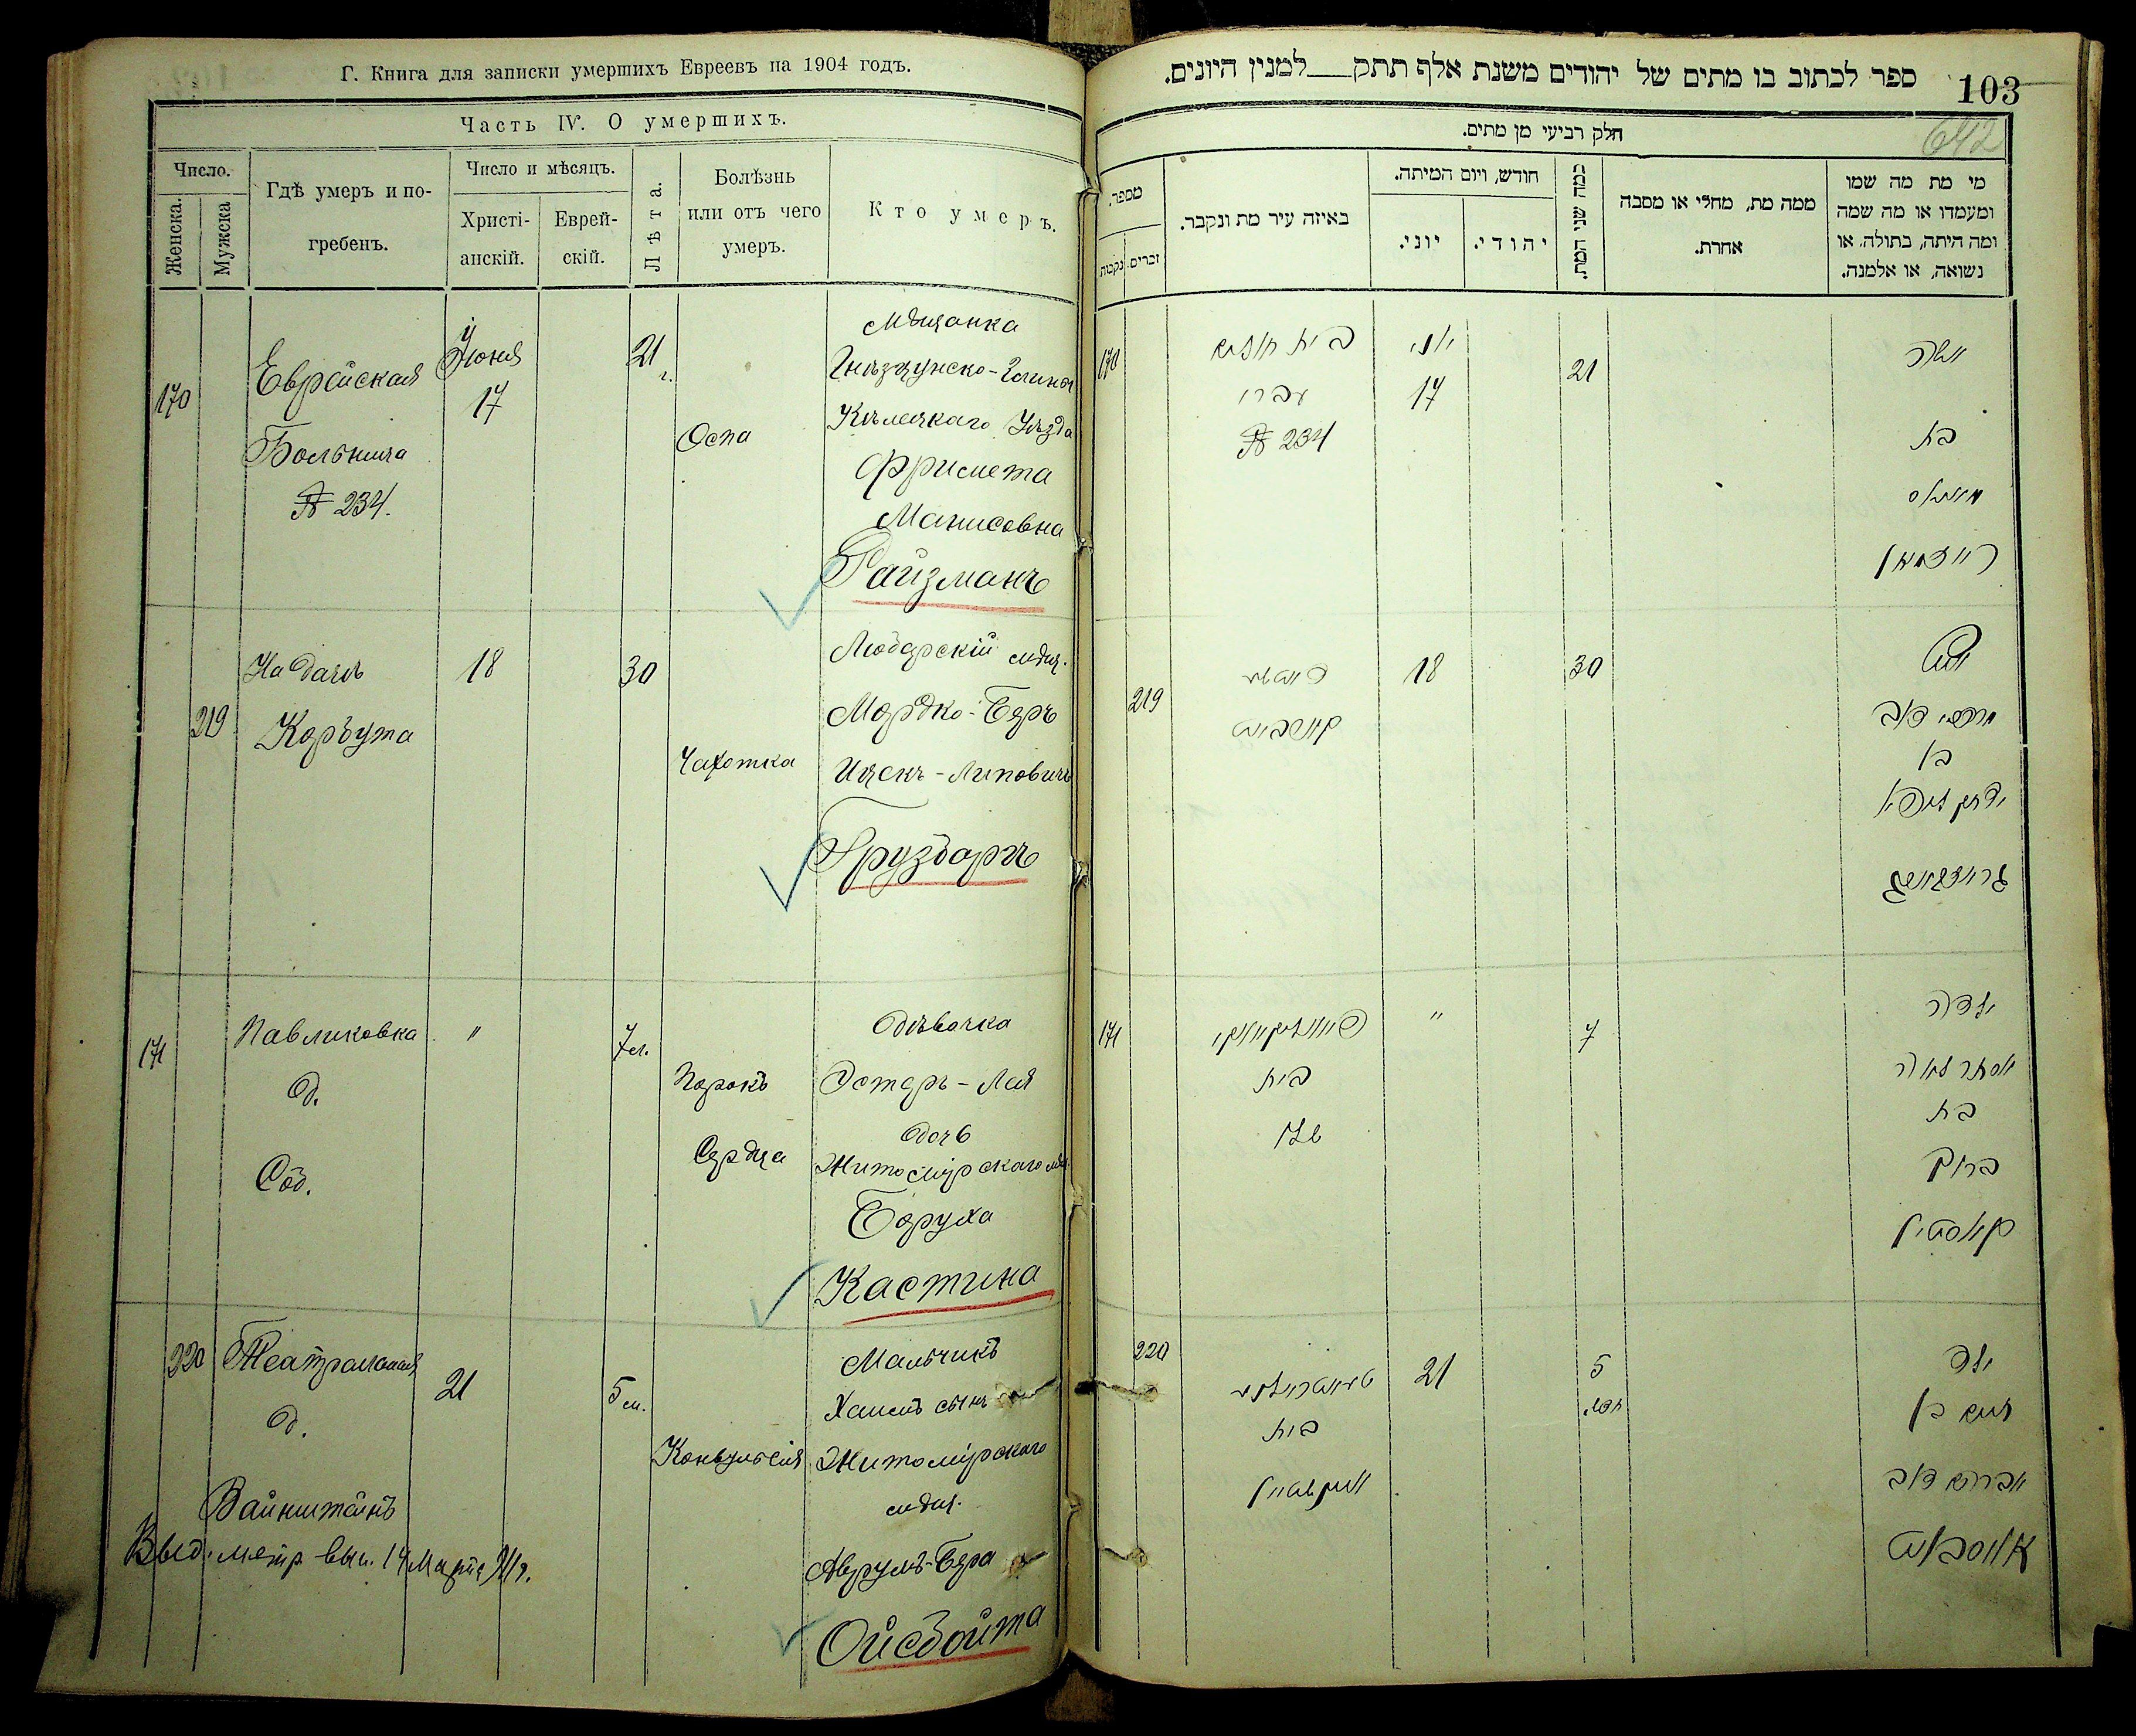 Г. Книга для записки умершихъ Евреевъ на 1904 годъ.
Часть IV. О умершихъ.
Число.
Женска.
Мужска
Гдѣ умеръ и по-
гребенъ.
Число и мѣсяцъ.
Христі-
анскій.
Еврей-
скій.
Лѣта.
Болѣзнь
или отъ чего
умеръ.
Кто умеръ.
170
Еврейская
Больница
№ 234.
Іюня
17
21
Оспа
Мѣщанка
Уѣзда
Фримета
Манисовна
Райзманъ
219
На дачѣ
18
30
Чахотка
Любарскій мѣщ.
Мордко-Беръ
Ицекъ-Липовичъ
Грузбаргъ
171
Павликовка
д.
Соб.
"
7 л.
Порокъ
Сердца
Дѣвочка
Эстеръ-Лея
дочь
Житомірскаго мѣщ.
Боруха
Кастина
220
Театральная
д.
Вайнштейнъ
21
5 м.
Конвульсія
Мальчикъ
Хаимъ сынъ
Житомірскаго
мѣщ.
Аврумъ-Бера
Ойсбойта
Выд. метр. вып. 14 Марта
103
642
ספר לכתוב בו מתים של יהודים משנת אלף תתק___למנין היונים.
חלק רביעי מן מתים.
מספר.
נקבות
זכרים
באיזה עיר מת ונקבר.
חודש, ויום המיתה.
יוני.
יהודי.
כמה שני המת.
ממה מת, מחלי או מסבה
אחרת.
מי מת מה שמו
ומעמדו או מה שמה
ומה היתה, בתולה או
נשואה, או אלמנה.
170
בית חולים
עברי
№ 234
יוני
17
21
בת
רייזמאן
219
18
30
מרדכי דוב
בן
יצחק ליפא
171
בית
שלו
"
7
ילדה
אסתר לאה
בת
ברוך
קאסטין
220
בית
21
5
חדש
ילד
חיים בן
אברהם דוב